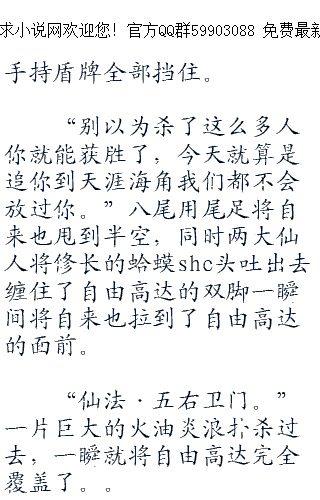 求小说网欢迎您! 官方QQ群59903088 免费最新
手持盾牌全部挡住。
“别以为杀了这么多人
你就能获胜了，今天就算是
追你到天涯海角我们都不会
放过你。”八尾用尾足将自
来也甩到半空，同时两大仙
人将修长的蛤蟆shc头吐出去
缠住了自由高达的双脚一瞬
间将自来也拉到了自由高达
的面前。
“仙法·五右卫门。”
一片巨大的火油炎浪扑杀过
去，一瞬就将自由高达完全
覆盖了。。